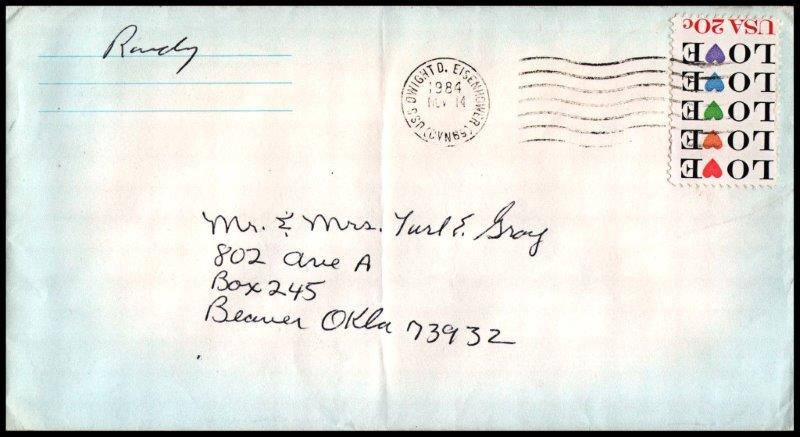 Randy
USS DWIGHT D. EISENHOWER
1984
NOV 14
(CVN69)
USA 20c
LOVE
LOVE
LOVE
LOVE
LOVE
Mr. & Mrs. Turl E. Gray
802 Ave A
Box 245
Beaver Okla 73932